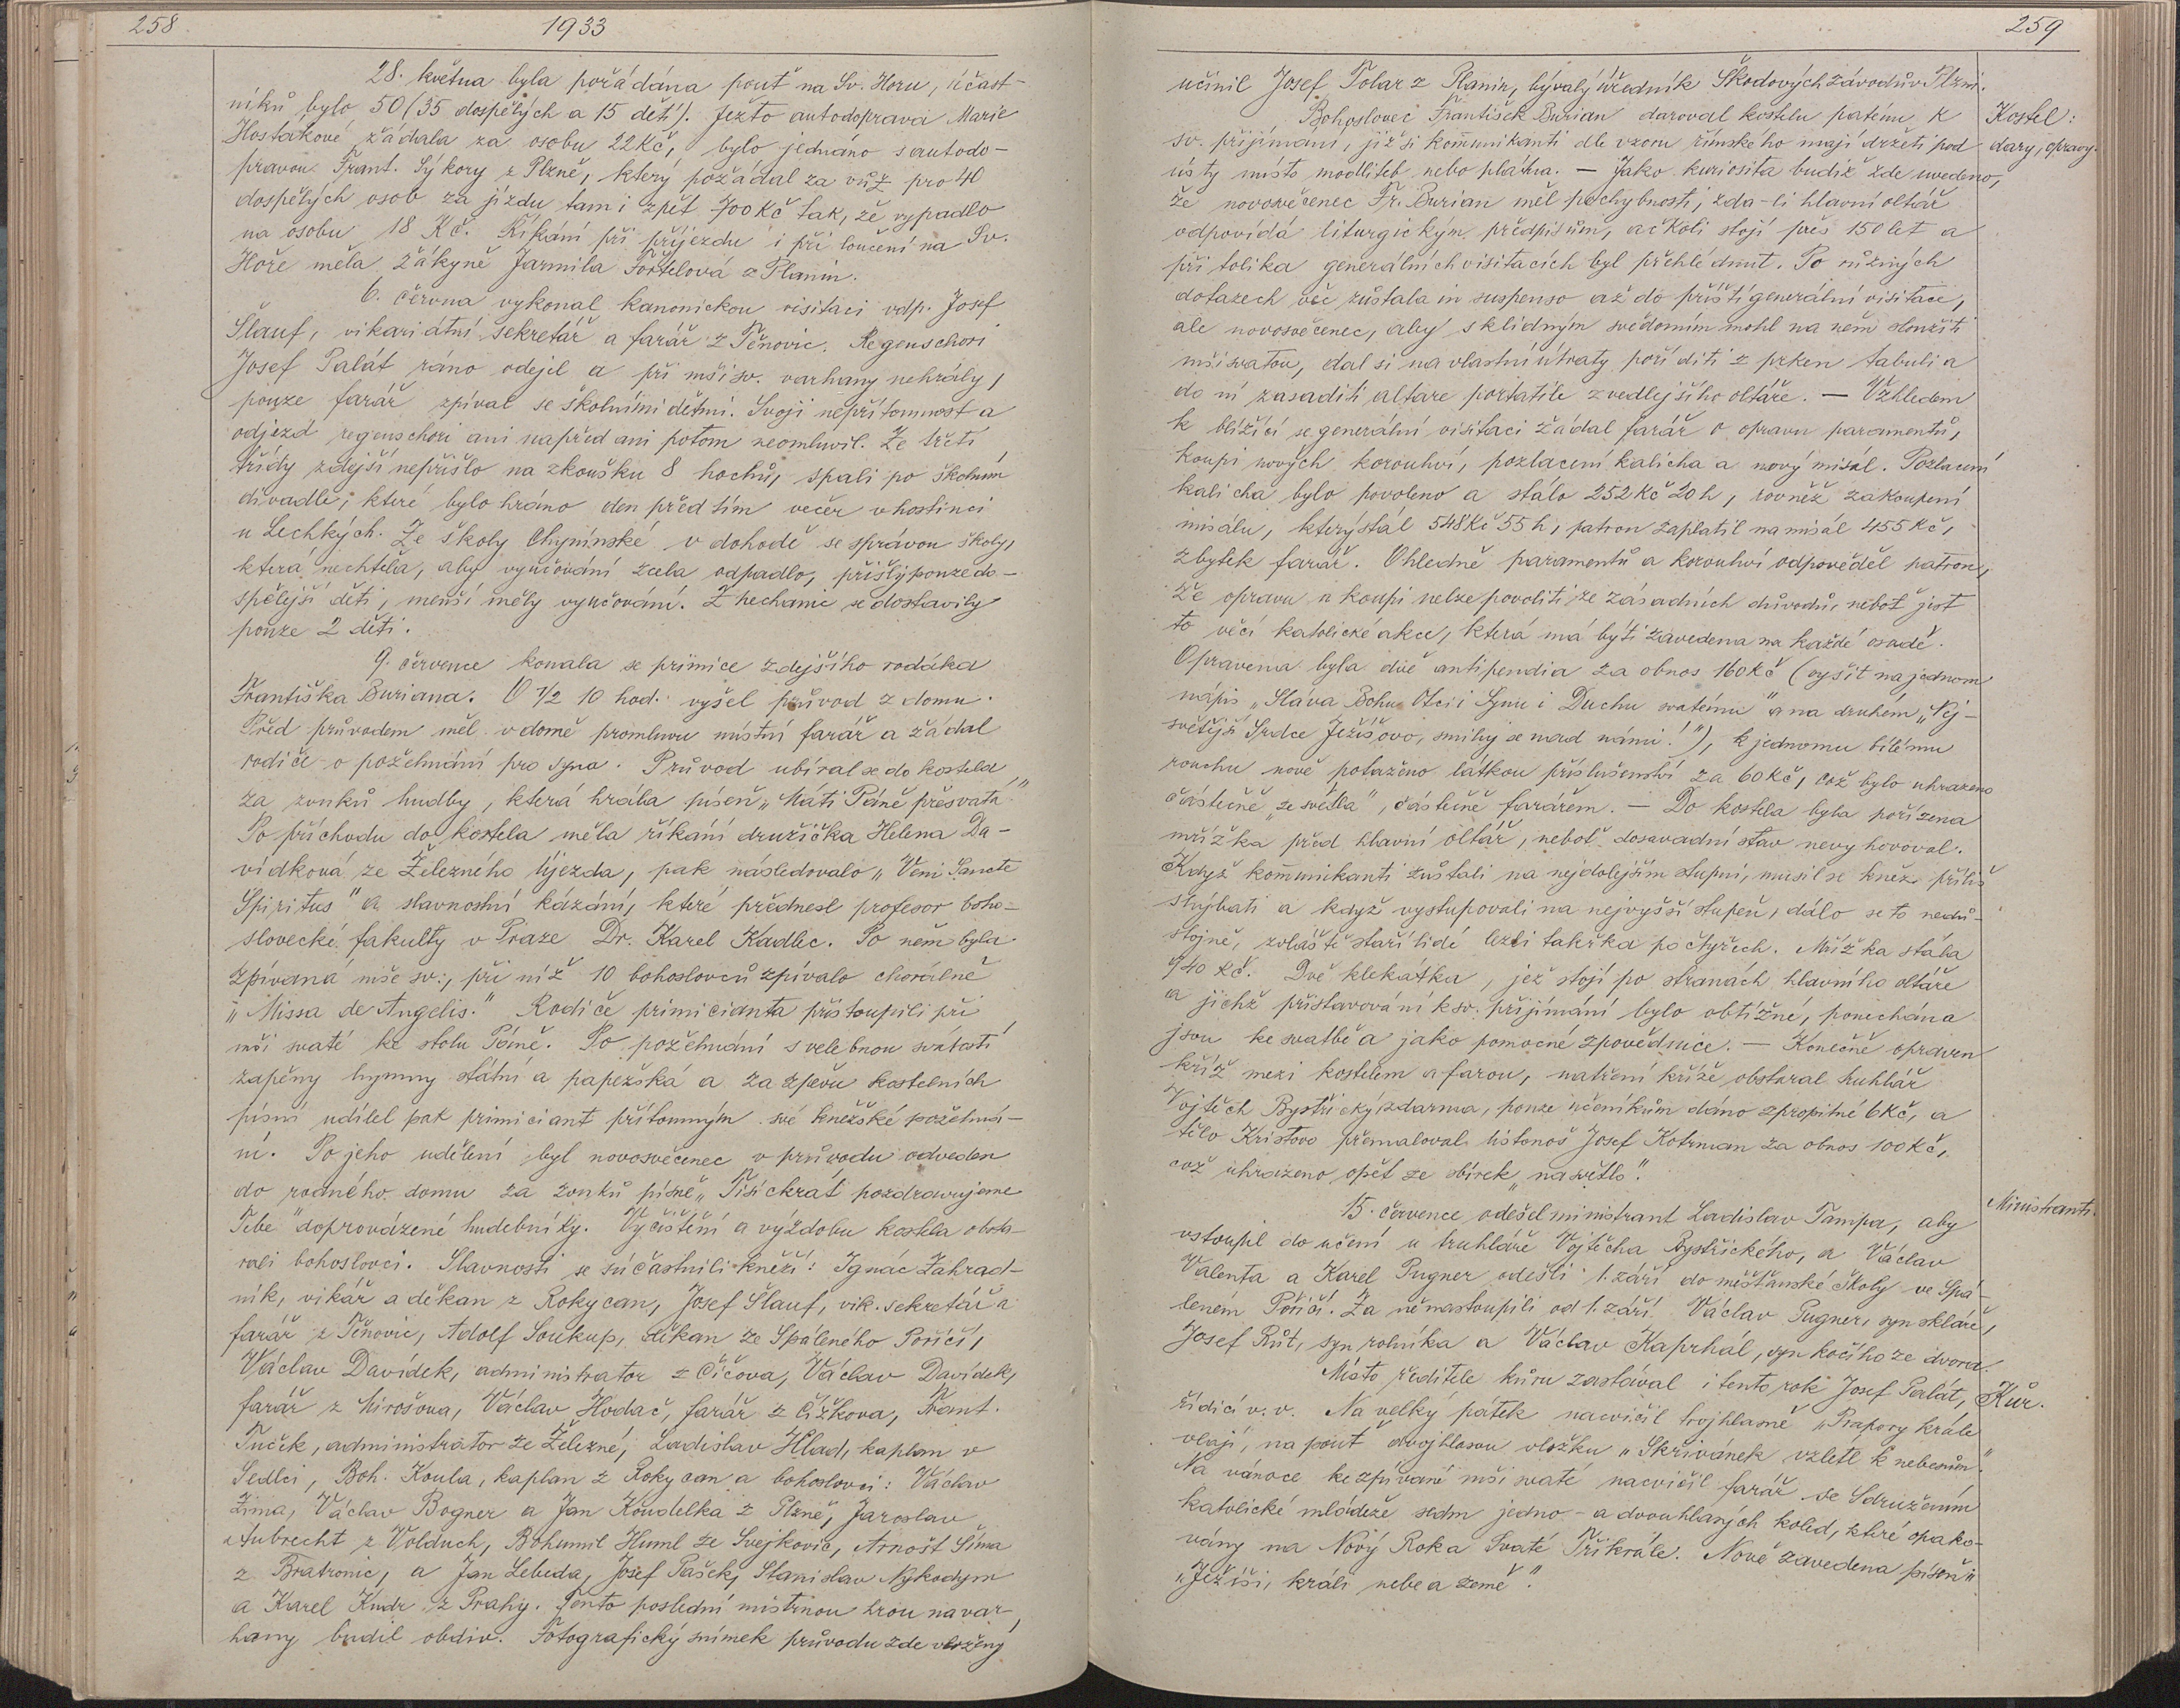 258
1933
28. května byla pořádána pouť na Sv. Horu, účast-
níků bylo 50 (35 dospělých a 15 dětí). Ježto autodoprava Marie
Hostákové žádala za osobu 22 Kč, bylo jednáno s autodo-
pravou Frant. Sýkory z Plzně, který požádal za vůz pro 40
dospělých osob za jízdu tam i zpět 700 Kč tak, že vypadlo
na osobu 18 Kč. Říkání při příjezdu i při loučení na Sv.
Hoře měla žákyně Jarmila Fořtelová z Planin.
6. června vykonal kanonickou visitaci vdp. Josef
Šlauf, vikariátní sekretář a farář z Těnovic. Regenschori
Josef Palát ráno odejel a při mši sv. varhany nehrály,
pouze farář zpíval se školními dětmi. Svoji nepřítomnost a
odjezd regenschori ani napřed ani potom neomluvil. Ze třetí
třídy zdejší nepřišlo na zkoušku 8 hochů, spali po školním
divadle, které bylo hráno den před tím večer v hostinci
u Lechkých. Ze školy Chynínské v dohodě se správou školy,
která nechtěla, aby vyučování zcela odpadlo, přišly pouze do-
spělejší děti, menší měly vyučování. Z hechanic se dostavily
pouze 2 děti.
9. července konala se primice zdejšího rodáka
Františka Buriana. O ½ 10 hod. vyšel průvod z domu.
Před průvodem měl v domě promluvu místní farář a žádal
rodiče o požehnání pro syna. Průvod ubíral se do kostela
za zvuků hudby, která hrála píseň „Máti Páně přesvatá."
Po příchodu do kostela měla říkání družička Helena Da-
vídková ze Železného Újezda, pak následovalo „Veni Sancte
Spiritus" a slavnostní kázání, které přednesl profesor boho-
slovecké fakulty v Praze Dr. Karel Kadlec. Po něm byla
zpívaná mše sv., při níž 10 bohoslovců zpívalo chorálně
„Missa de Angelis." Rodiče primicianta přistoupili při
mši svaté ke stolu Páně. Po požehnání s velebnou svátostí
zapěny hymny státní a papežská a za zpěvu kostelních
písní udílel pak primiciant přítomným své kněžské požehná-
ní. Po jeho udělení byl novosvěcenec v průvodu odveden
do rodného domu za zvuků písně „Tisíckrát pozdravujeme
Tebe" doprovázené hudebníky. Vyčištění a výzdobu kostela obsta-
rali bohoslovci. Slavnosti se súčastnili kněží: Ignác Zahrad-
ník, vikář a děkan z Rokycan, Josef Šlauf, vik. sekretář a
farář z Těnovic, Adolf Soukup, děkan ze Spáleného Poříčí,
Václav Davídek, administrator z Číčova, Václav Davídek,
farář z Mirošova, Václav Hodač, farář z Čížkova, Frant.
Tuček, administrátor ze Železné, Ladislav Hlad, kaplan v
Sedlci, Boh. Koula, kaplan z Rokycan a bohoslovci: Václav
Zima, Václav Bogner a Jan Koudelka z Plzně, Jaroslav
Aubrecht z Volduch, Bohumil Huml ze Svejkovic, Arnošt Šíma
z Bratronic, a Jan Lebeda, Josef Pašek, Stanislav Nykodym
a Karel Kudr z Prahy. Tento poslední mistrnou hrou na var-
hany budil obdiv. Fotografický snímek průvodu zde vložený
259
učinil Josef Tolar z Planin, bývalý úředník Škodových závodů v Plzni.
Bohoslovec František Burian daroval kostelu paténu k
Kostel:
sv. přijímání, již si kommunikanti dle vzoru římského mají držeti pod
dary, opravy.
ústy místo modliteb nebo plátna. — Jako kuriosita budiž zde uvedeno,
že novosvěcenec Fr. Burian měl pochybnosti, zda-li hlavní oltář
odpovídá liturgickým předpisům, ačkoli stojí přes 150 let a
při tolika generálních visitacích byl přehlédnut. Po různých
dotazech věc zůstala in suspenso až do příští generální visitace,
ale novosvěcenec, aby s klidným svědomím mohl na něm sloužiti
mši svatou, dal si na vlastní útraty poříditi z prken tabuli a
do ní zasaditi altare portatile z vedlejšího oltáře. — Vzhledem
k blížící se generální visitaci žádal farář o opravu paramentů,
koupi nových korouhví, pozlacení kalicha a nový misál. Pozlacení
kalicha bylo povoleno a stálo 252 Kč 20 h, rovněž zakoupení
misálu, který stál 548 Kč 55 h, patron zaplatil na misál 455 Kč,
zbytek farář. Ohledně paramentů a korouhví odpověděl patron,
že opravu a koupi nelze povoliti ze zásadních důvodů, neboť jest
to věcí katolické akce, která má býti zavedena na každé osadě.
Opravena byla dvě antipendia za obnos 160 Kč (vyšit na jednom
nápis „Sláva Bohu Otci i Synu i Duchu svatému" a na druhém „Nej-
světější Srdce Ježíšovo, smiluj se nad námi!"), k jednomu bílému
rouchu nově potaženo látkou příslušenství za 60 Kč, což bylo uhrazeno
částečně „ze světla", částečně farářem. — Do kostela byla pořízena
mřížka před hlavní oltář, neboť dosavadní stav nevyhovoval.
Když kommunikanti zůstali na nejdolejším stupni, musil se kněz příliš
shýbati a když vystupovali na nejvyšší stupeň, dálo se to nedů-
stojně, zvláště staří lidé lezli takřka po čtyřech. Mřížka stála
940 Kč. Dvě klekátka, jež stojí po stranách hlavního oltáře
a jichž přistavování k sv. přijímání bylo obtížné, ponechána
jsou ke svatbě a jako pomocné zpovědnice. — Konečně opraven
kříž mezi kostelem a farou, natření kříže obstaral truhlář
Vojtěch Bystřický zdarma, pouze učeníkům dáno zpropitné 6 Kč, a
tělo Kristovo přemaloval listonoš Josef Kotrman za obnos 100 Kč,
což uhrazeno opět ze sbírek „na světlo".
15. července odešel ministrant Ladislav Tampa, aby
Ministranti.
vstoupil do učení u truhláře Vojtěcha Bystřického, a Václav
Valenta a Karel Pugner odešli 1. září do měšťanské školy ve Spá-
leném Poříčí. Za ně nastoupili od 1. září Václav Pugner, syn skláře,
Josef Růt, syn rolníka a Václav Kaprhál, syn kočího ze dvora.
Místo ředitele kůru zastával i tento rok Josef Palát,
Kůr.
řídící v. v. Na velký pátek nacvičil trojhlasně „Prapory krále
vlají, na pouť dvojhlasou vložku „Skřivánek vzletl k nebesům."
Na vánoce ke zpívané mši svaté nacvičil farář se Sdružením
katolické mládeže sedm jedno- a dvouhlasých koled, které opako-
vány na Nový Rok a Svaté Tři krále. Nově zavedena píseň
„Ježíši, králi nebe a země".